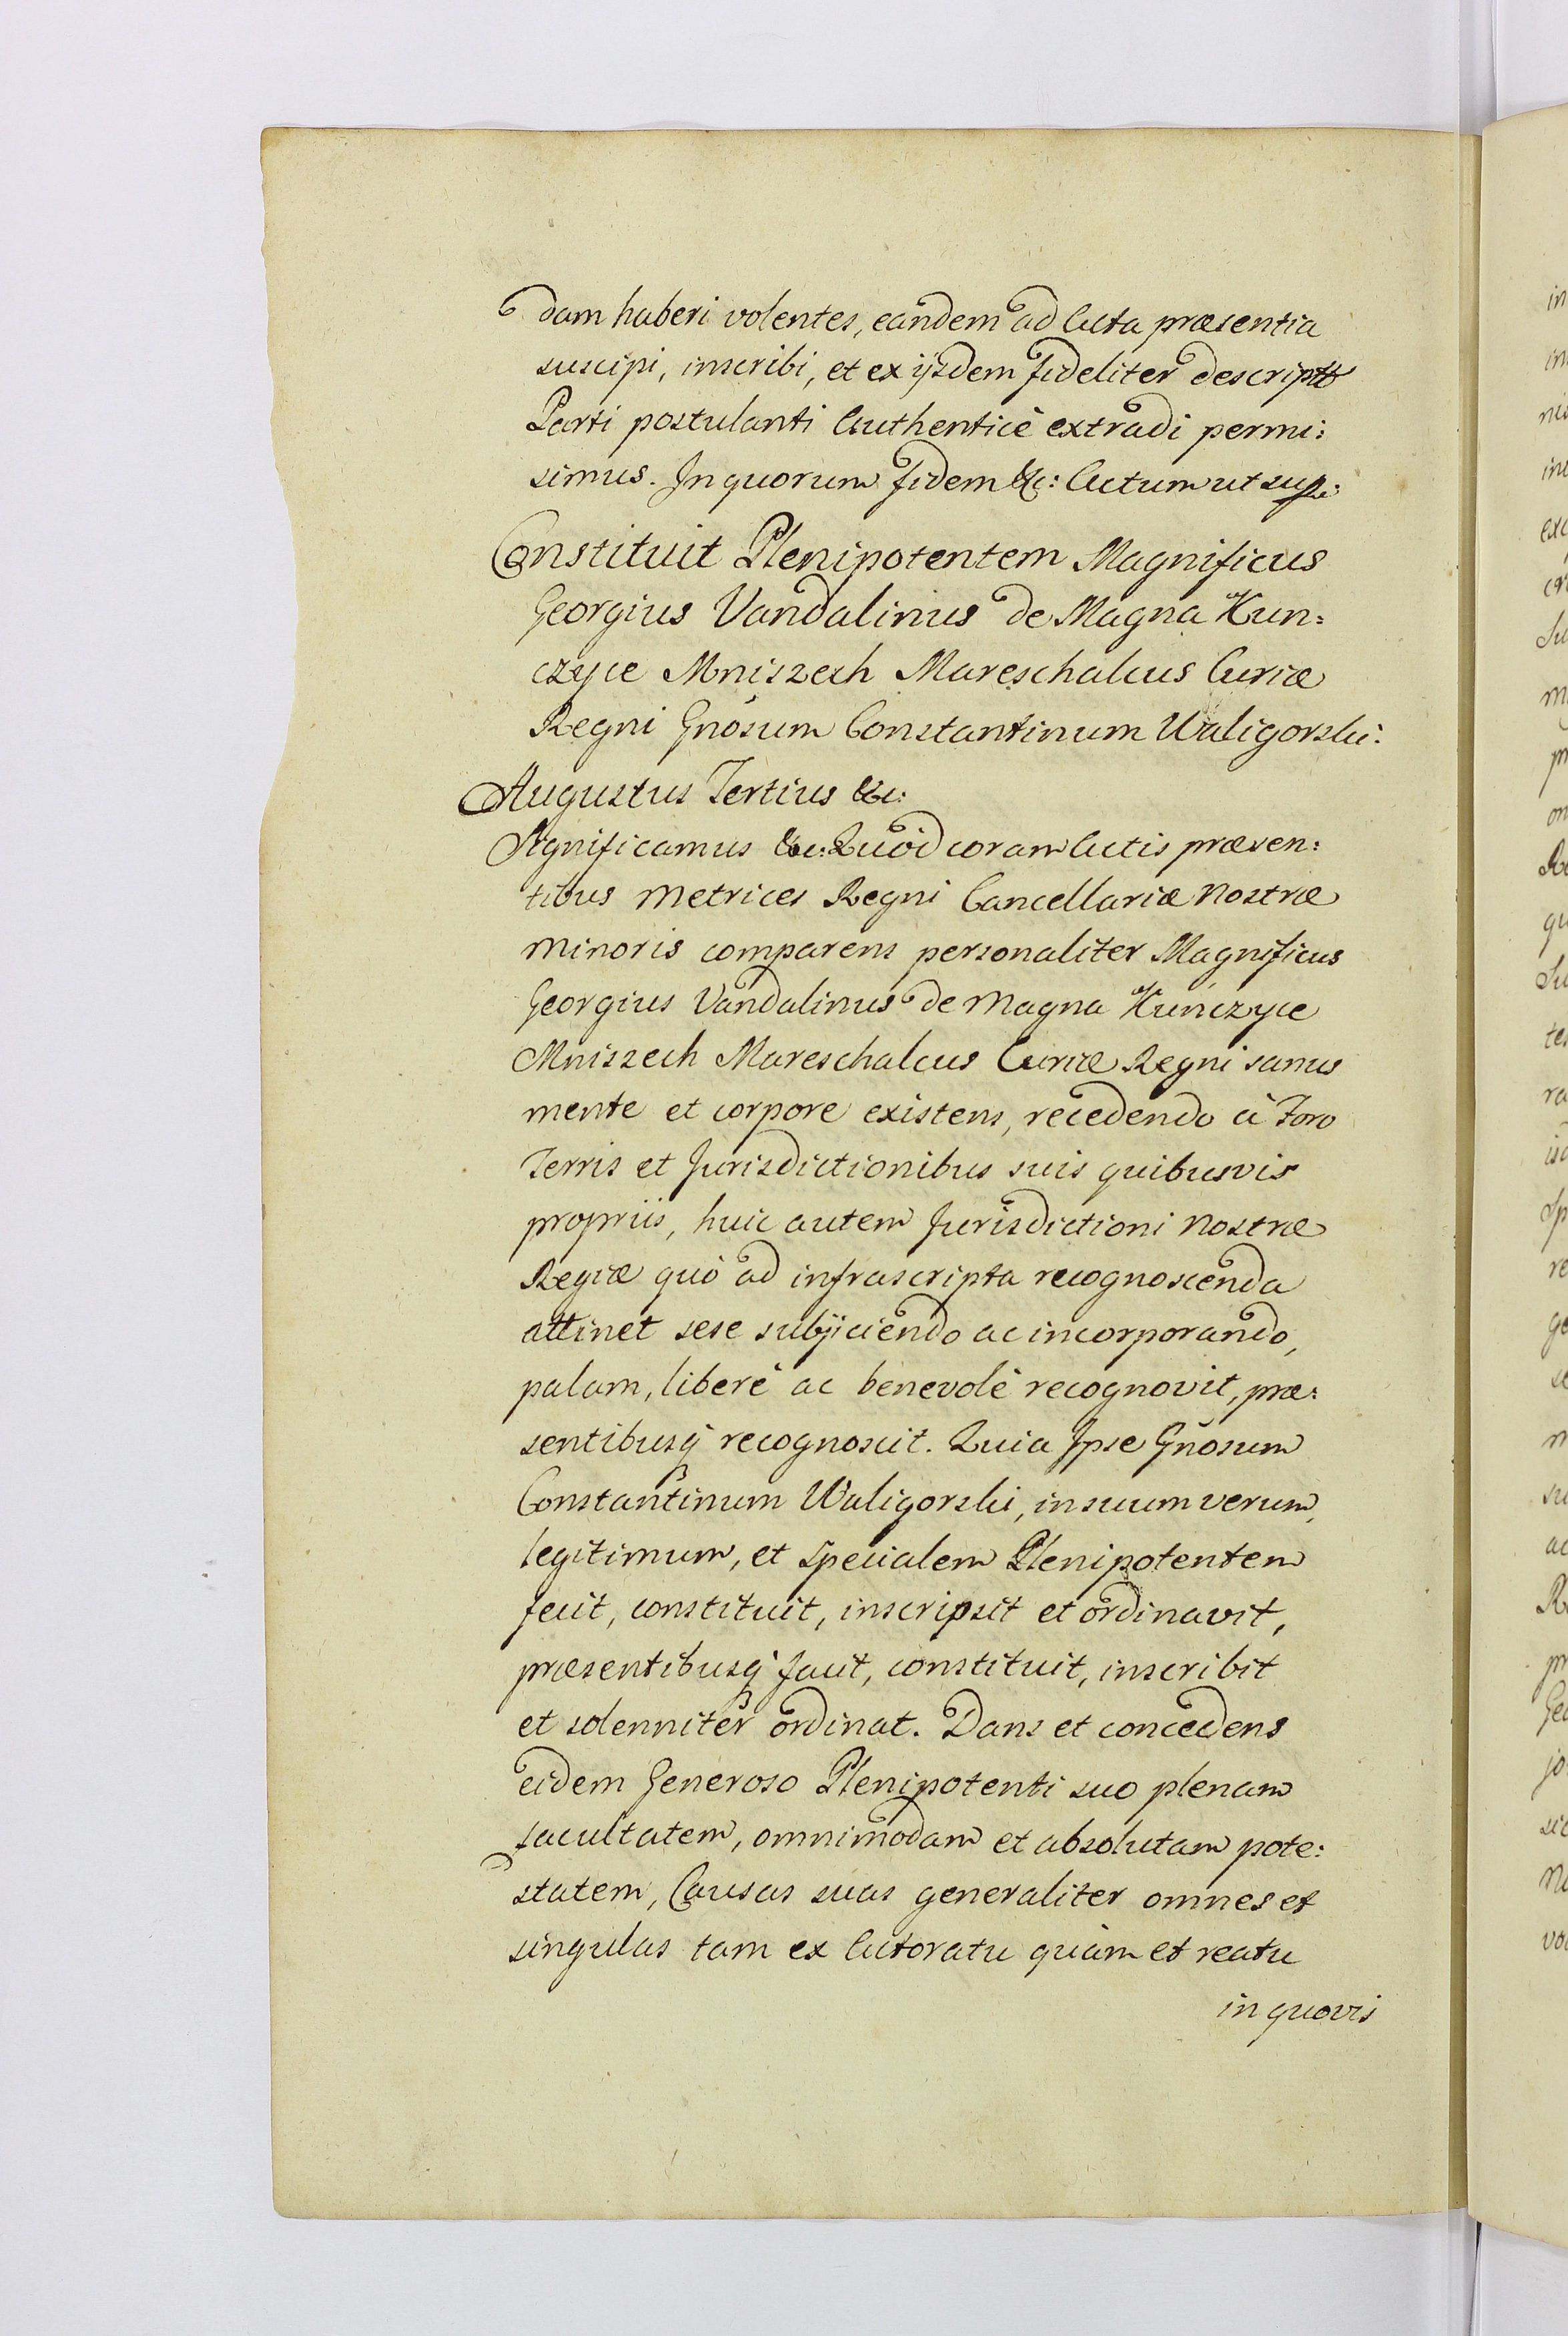 dam haberi volentes, eandem ad Acta præsentia
suscipi, inscribi, et ex ijsdem fideliter descript
Parti postulanti Authenticè extradi permi:
simus. In quorum fidem &c: Actum ut sup:
Constituit Plenipotentem Magnificus
Georgius Vandalinus de Magna Kun:
czyce Mniszech Mareschalcus Curiæ
Regni Gnosum Constantinum Waligorski.
Augustus Tertius &c:
Significamus &c: Quòd coram Actis præsen:
tibus Metrices Regni Cancellariæ Nostræ
Minoris comparens personaliter Magnificus
Georgius Vandalinus de Magna Kunczyce
Mniszech Mareschalcus Curiæ Regni sanus
mente et corpore existens, recedendo à Foro
Terris et Jurisdictionibus suis quibusvis
propriis, huic autem Jurisdictioni Nostræ
Regiæ quò ad infrascripta recognoscenda
attinet sese subijciendo ac incorporando,
palam, liberè ac benevolè recognovit, præ:
sentibusq recognoscit. Quia Ipse Gnosum
Constantinum Waligorski, in suum verum,
legitimum, et specialem Plenipotentem
fecit, constituit, inscripsit et ordinavit,
præsentibusq facit, constituit, inscribit
et solenniter ordinat. Dans et concedens
eidem Generoso Plenipotenti suo plenam
facultatem, omnimodam et absolutam pote:
statem, Causas suas generaliter omnes et
singulas tam ex Actoratu quàm et reatu
in quovis